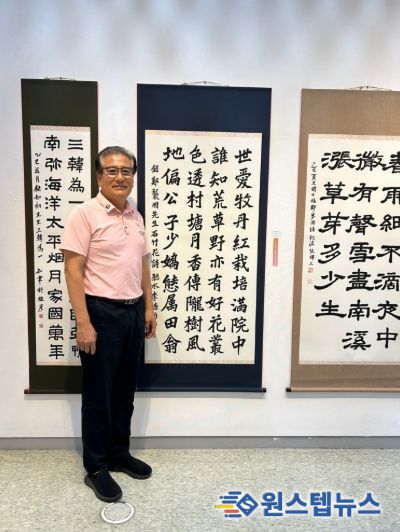 世愛牡丹紅栽培滿院中
誰知荒草野亦有好花叢
色透村塘月香傳隴樹風
地偏公子少嬌態屬田翁
錄鄭襲明先生石竹花詩
雨細不滴夜中
微有聲雪盡南溪
漲草芽多少生
三韓為一
南弥海洋太平烟月家國萬年
원스텝뉴스